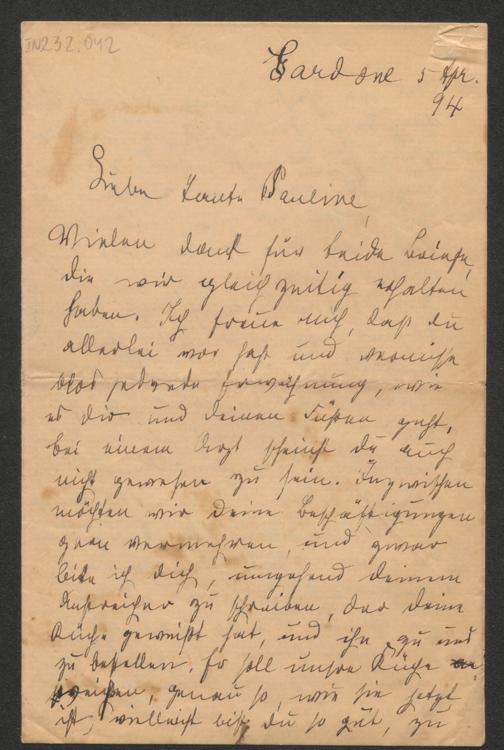 IN232.042
Gardone 5 Apr.
94
Liebe Tante Pauline,
Vielen Dank für beide Briefe,
die wir gleichzeitig erhalten
haben. Ich freue mich, daß du
allerlei vor hast und vermisse
blos jedwede Erwähnung, wie
es dir und deinen Füßen geht,
bei einem Arzt scheinst du auch
nicht gewesen zu sein. Inzwischen
möchten wir deine Beschäftigungen
gern vermehren, und zwar
bitte ich dich, umgehend deinem
Anstreicher zu schreiben, der deine
Küche geweißt hat, und ihn zu uns
zu bestellen. Er soll unsre Küche
streichen, genau so, wie sie jetzt
ist, vielleicht bist du so gut, zu